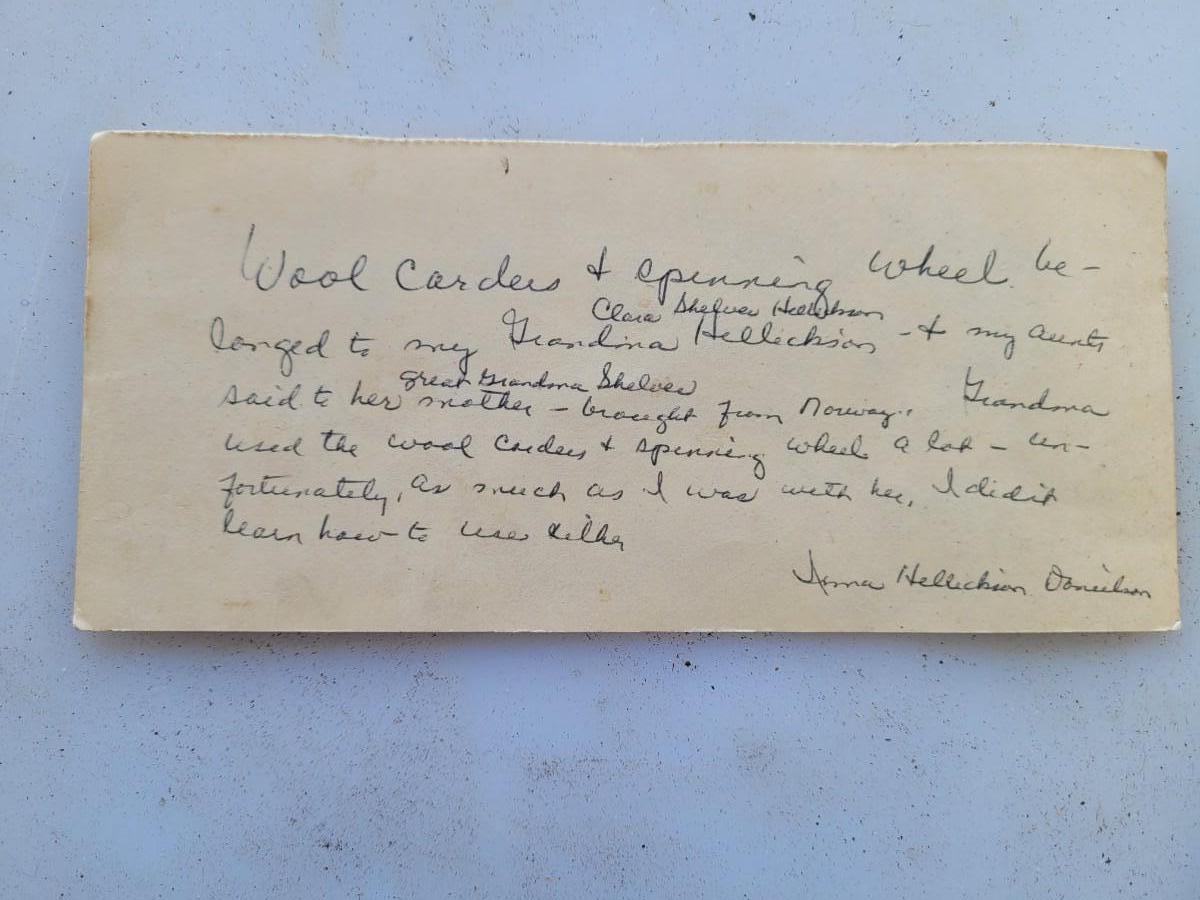 Wool Carders & spinning wheel be-
Clara Shelver Hellickson
longed to my Grandma Hellickson - & my aunts
great Grandma Shelver
said to her mother - brought from Norway. Grandma
used the wool carders & spinning wheel a lot - un-
fortunately, as much as I was with her, I didn't
learn how to use either
Irma Hellickson Danielson